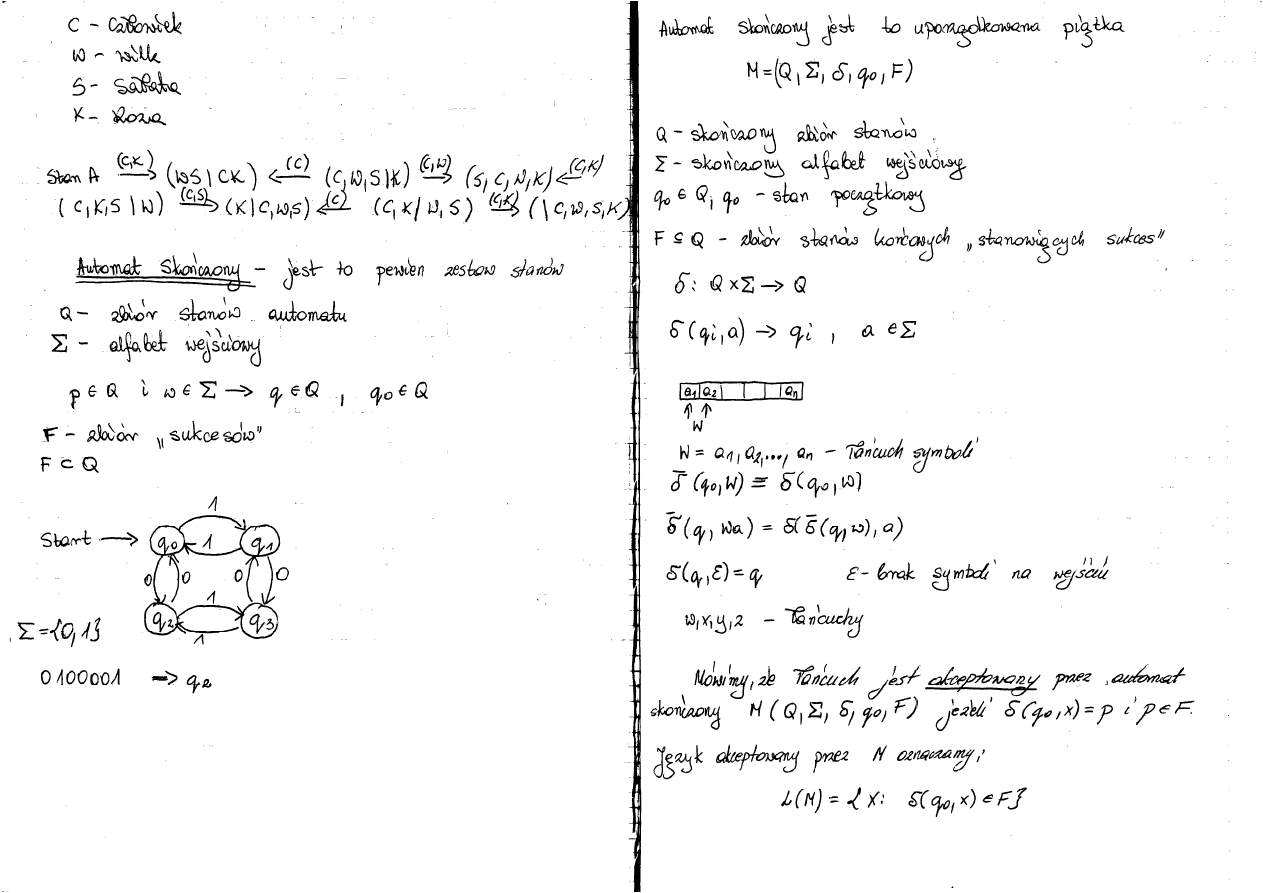 C - Człowiek
W - wilk
S - Sałata
K - koza
Stan A (C,K)→ (WS | CK) ←(C) (C,W,S|K) (C,W)→ (S, C, W, K) ←(C,K)
(C,K,S | W) (C,S)→ (K | C,W,S) ←(C) (C,K / W,S) (C,K)→ ( | C,W,S,K)
Automat Skończony - jest to pewien zestaw stanów
Q - zbiór stanów automatu
Σ - alfabet wejściowy
p ∈ Q i w ∈ Σ → q ∈ Q , q0 ∈ Q
F - zbiór „sukcesów"
F ⊂ Q
1
Start → q0 1 q1
0 0 0 0
1
q2 q3
1
Σ = {0,1}
0100001 → q2
Automat skończony jest to uporządkowana piątka
M = (Q, Σ, δ, q0, F)
Q - skończony zbiór stanów
Σ - skończony alfabet wejściowy
q0 ∈ Q, q0 - stan początkowy
F ⊆ Q - zbiór stanów końcowych „stanowiących sukces"
δ: Q × Σ → Q
δ(qi, a) → qi , a ∈ Σ
a1 a2 an
↑ ↑
W
W = a1, a2, ..., an - łańcuch symboli
δ̄ (q0, W) ≡ δ(q0, w)
δ̄(q, wa) = δ(δ̄(q, w), a)
δ(q, ε) = q ε - brak symboli na wejściu
w, x, y, z - łańcuchy
Mówimy, że łańcuch jest akceptowany przez automat
skończony M (Q, Σ, δ, q0, F) jeżeli δ(q0, x) = p i p ∈ F.
Język akceptowany przez M oznaczamy:
L(M) = { X: δ(q0, x) ∈ F}